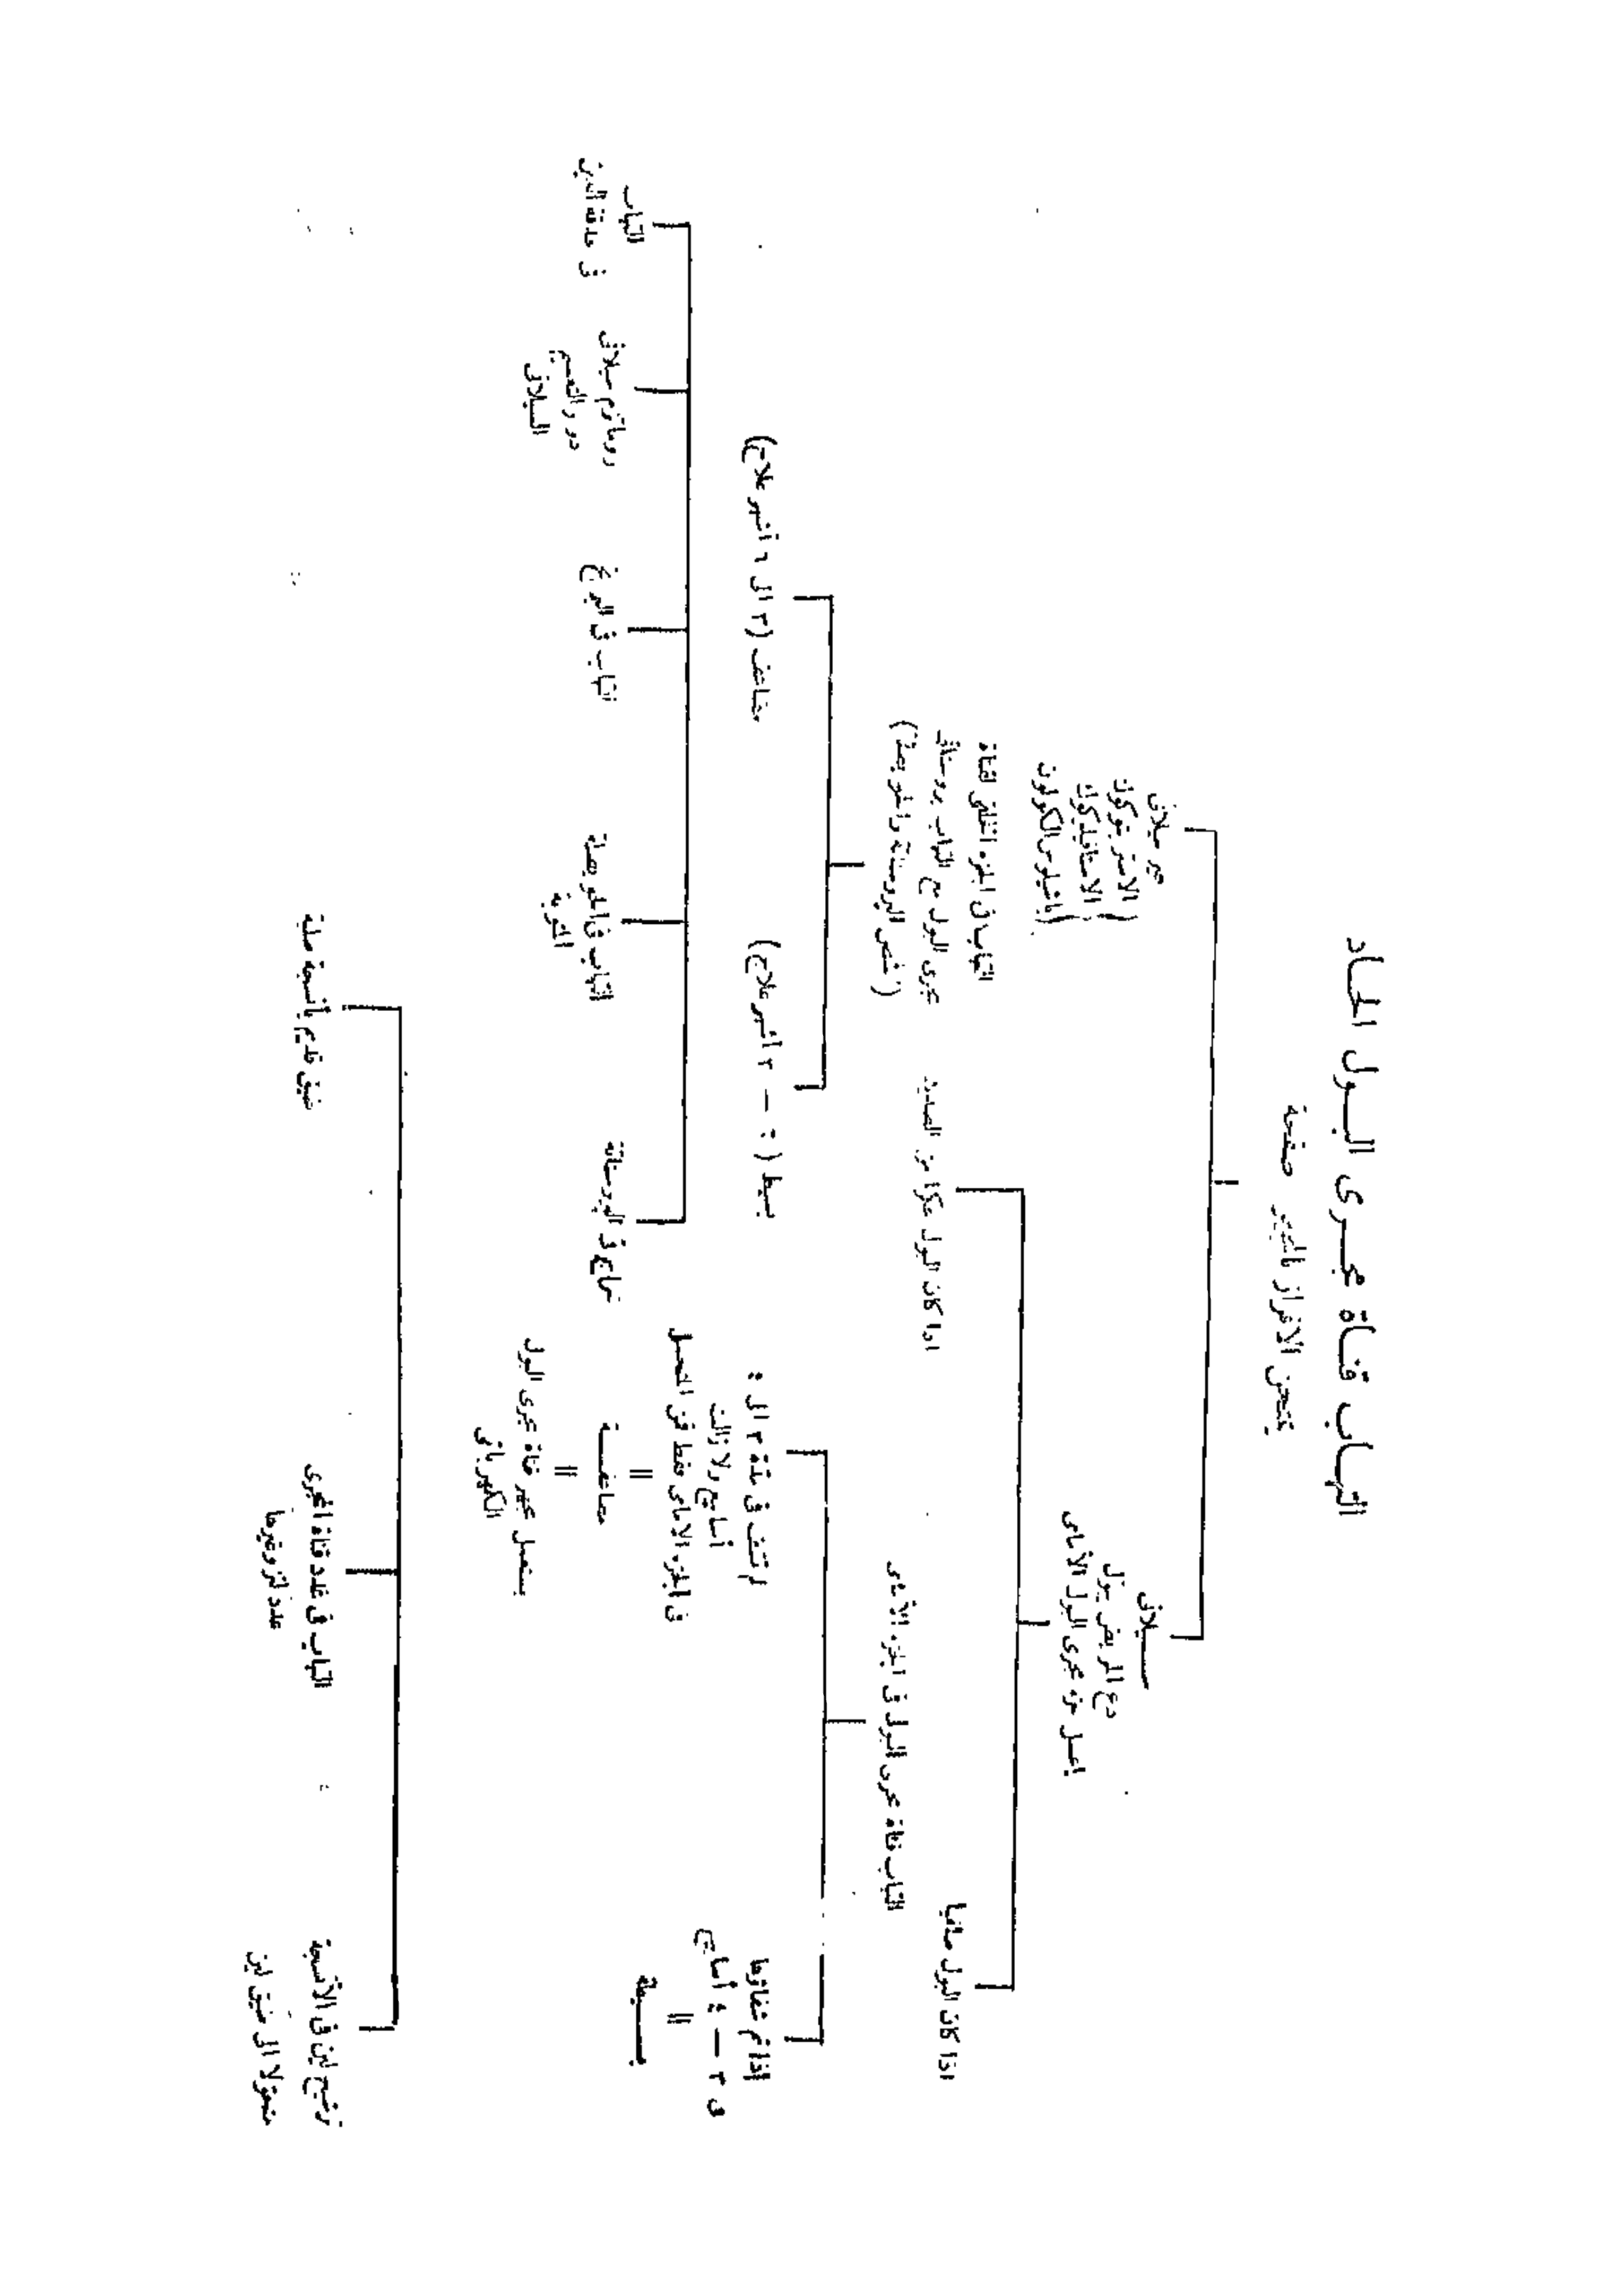 التهاب قناة مجرى البول الحاد
يمتحن الافراز بالمجهر صفحة
سيلانى
دع المريض يبول
اغسل مجرى البول الأمامى
غير سيلانى
( الاستربتوكوك
( الاستافيلوكوك
( باشيلوس الكولون
اذا كان البول صافيا
اذا كان البول عكرا من الصديد
التهاب قناة مجرى البول فى الجزء الأمامى
التهاب فى الجزء الخلفى لقناة
مجرى البول مع التهاب بروستاتى
( افحص البروستاتة والحويصلة )
إذا تم شفاؤها
فى ٣ — ٤ أسابيع
=
بسيطة
لم تشف فى مدة ٣ الى ٤
أسابيع ولا زالت
فى الجزء الامامى فقط فمن المحتمل
=
مضاعفة
=
يستعمل مجهر قناة مجرى البول
الكهربائى
بسيط ( ٤ — ٢ اشهر علاج )
مضاعف ( ٣ الى ٦ أشهر علاج )
خراج فى البروستاتة
التهاب فى الحويصلة
المنوية
التهاب فى البربخ
روماتزم سيلانى
دور التسمم
السيلانى
التهاب
فى حدقة العين
ترشيح لين فى الأنسجة
متحولا الى ضيق لين
التهاب فى غدد قناة المجرى
غدد لتر وغيرها
ضيق قديم بأنسجة صلبة